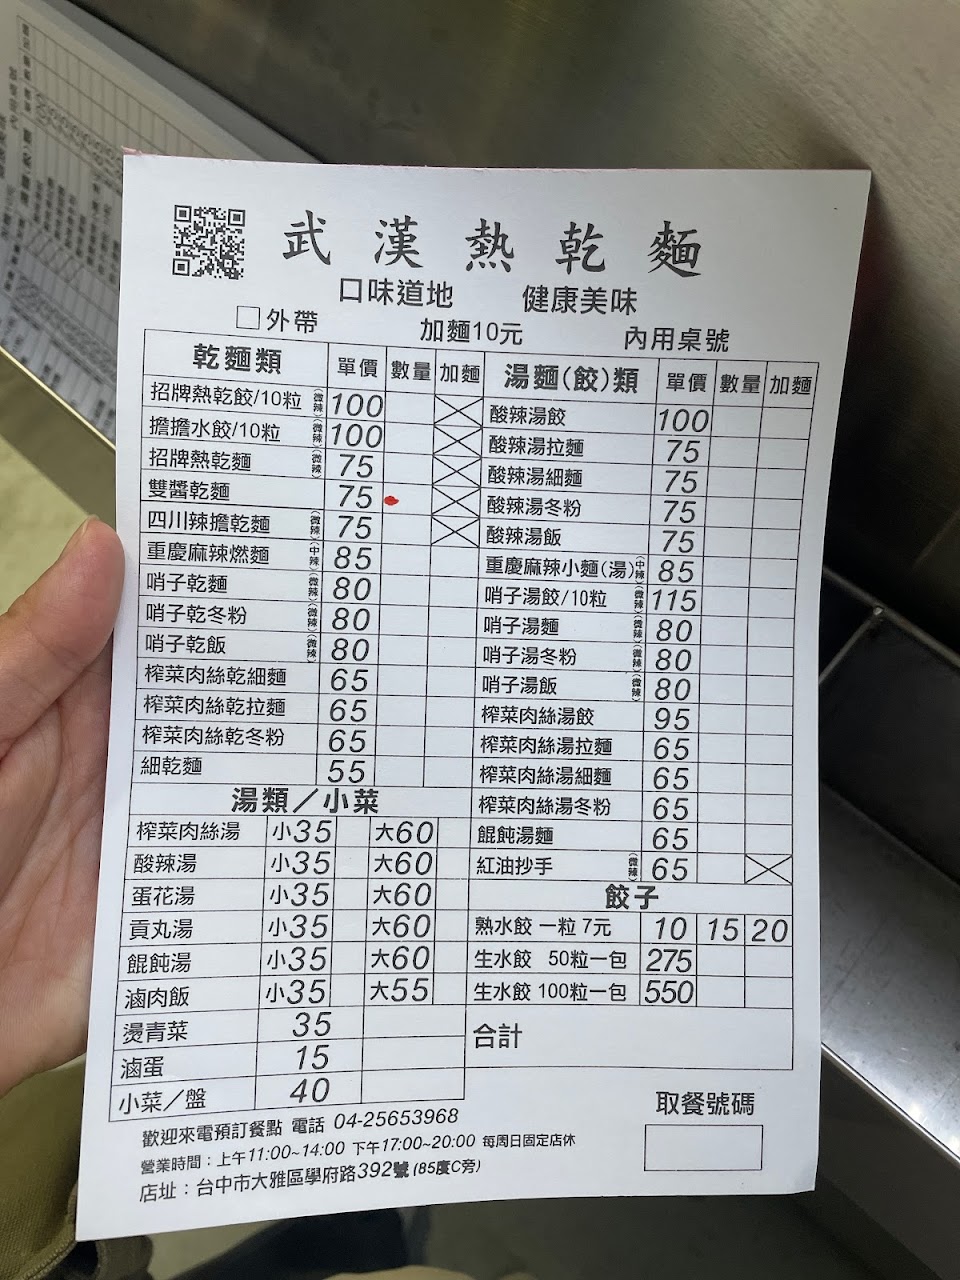 武漢熱乾麵
口味道地 健康美味
□外帶 加麵10元 內用桌號
乾麵類 單價 數量 加麵
招牌熱乾餃/10粒 (微辣) 100
擔擔水餃/10粒 (微辣) 100
招牌熱乾麵 (微辣) 75
雙醬乾麵 75
四川辣擔乾麵 (微辣) 75
重慶麻辣燃麵 (中辣) 85
哨子乾麵 (微辣) 80
哨子乾冬粉 (微辣) 80
哨子乾飯 (微辣) 80
榨菜肉絲乾細麵 65
榨菜肉絲乾拉麵 65
榨菜肉絲乾冬粉 65
細乾麵 55
湯類／小菜
榨菜肉絲湯 小35 大60
酸辣湯 小35 大60
蛋花湯 小35 大60
貢丸湯 小35 大60
餛飩湯 小35 大60
滷肉飯 小35 大55
燙青菜 35
滷蛋 15
小菜／盤 40
湯麵(餃)類 單價 數量 加麵
酸辣湯餃 100
酸辣湯拉麵 75
酸辣湯細麵 75
酸辣湯冬粉 75
酸辣湯飯 75
重慶麻辣小麵(湯) (中辣) 85
哨子湯餃/10粒 (微辣) 115
哨子湯麵 (微辣) 80
哨子湯冬粉 (微辣) 80
哨子湯飯 (微辣) 80
榨菜肉絲湯餃 95
榨菜肉絲湯拉麵 65
榨菜肉絲湯細麵 65
榨菜肉絲湯冬粉 65
餛飩湯麵 65
紅油抄手 (微辣) 65
餃子
熟水餃 一粒 7元 10 15 20
生水餃 50粒一包 275
生水餃 100粒一包 550
合計
取餐號碼
歡迎來電預訂餐點 電話 04-25653968
營業時間：上午11:00~14:00 下午17:00~20:00 每周日固定店休
店址：台中市大雅區學府路392號 (85度C旁)